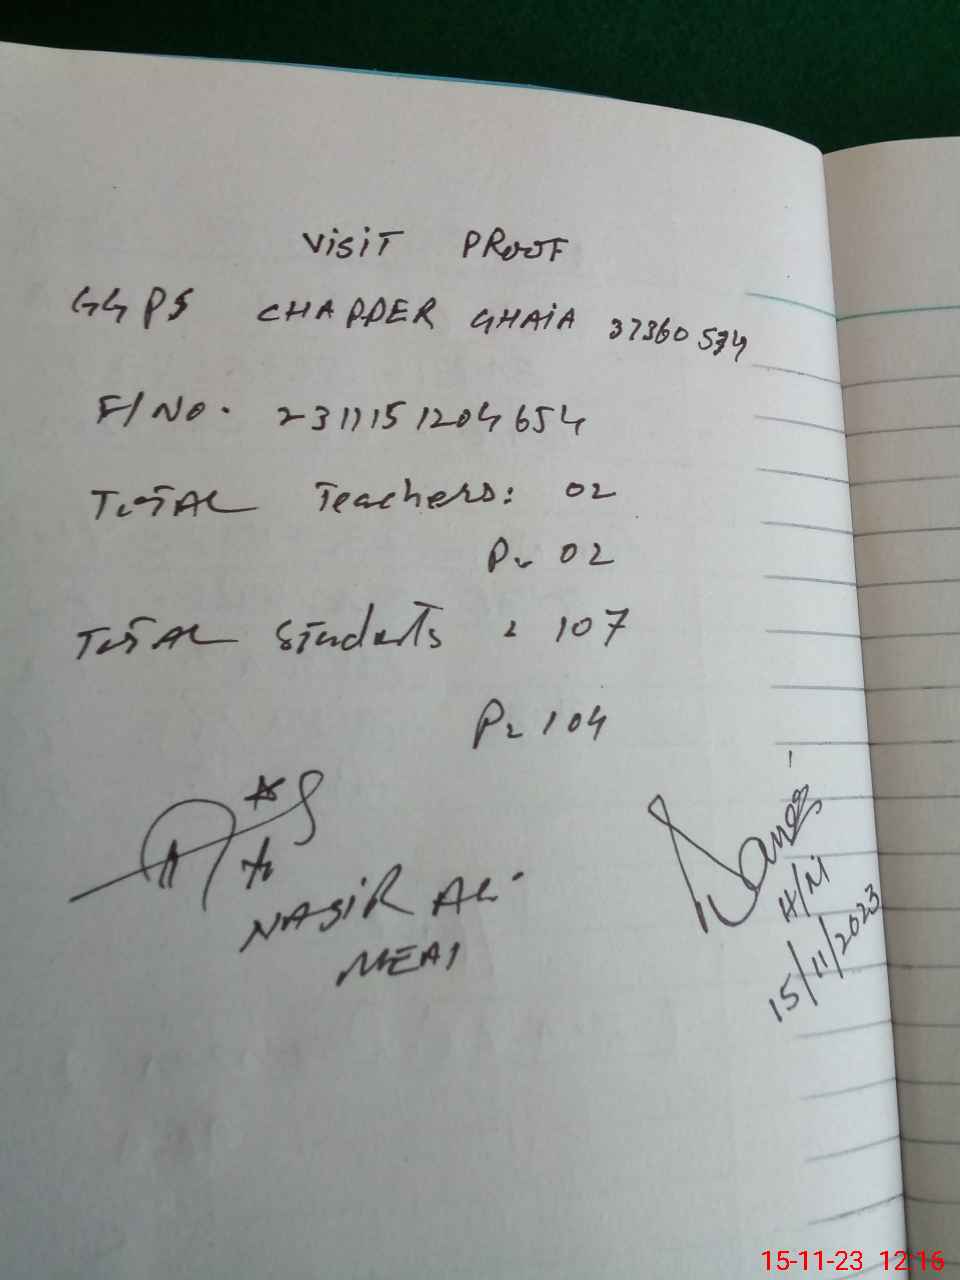 VISIT PROOF
GGPS CHAPPER GHAIA 37360534
F/NO. 231115 1204654
TOTAL Teachers: 02
P= 02
TOTAL Students = 107
P= 104
NASIR ALI
MEA1
H/M
15/11/2023
15-11-23 12:16